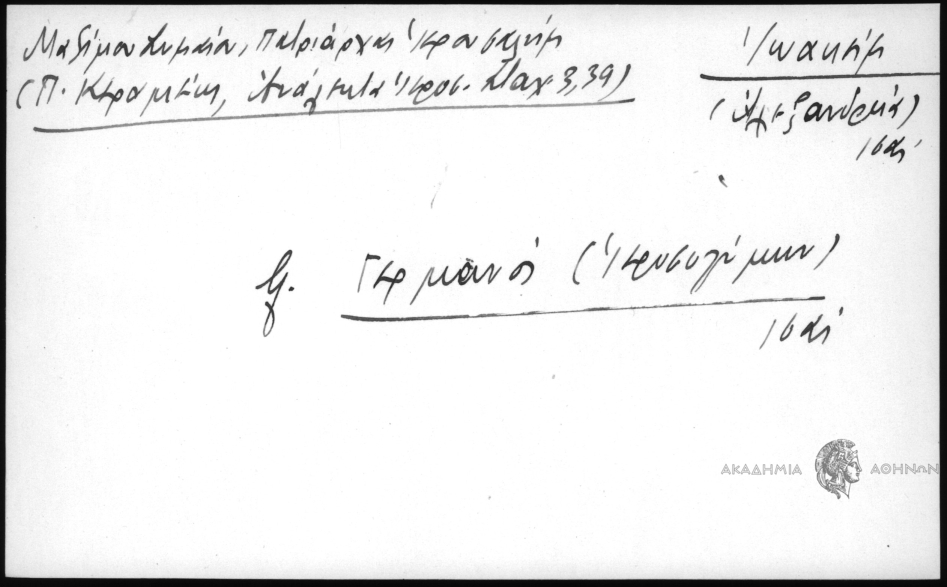 Μαξίμου Συμαίου, Πατριάρχαι Ἱεροσαλήμ
(Π. Κεραμέως, Ἀνάλεκτα Ἱεροσ. Σταχ 3,39)
Ἰωακείμ
(Ἀλεξανδρεία)
16 αἰ
βλ. Γερμανός (Ἱεροσολύμων)
16 αἰ
ΑΚΑΔΗΜΙΑ ΑΘΗΝΩΝ